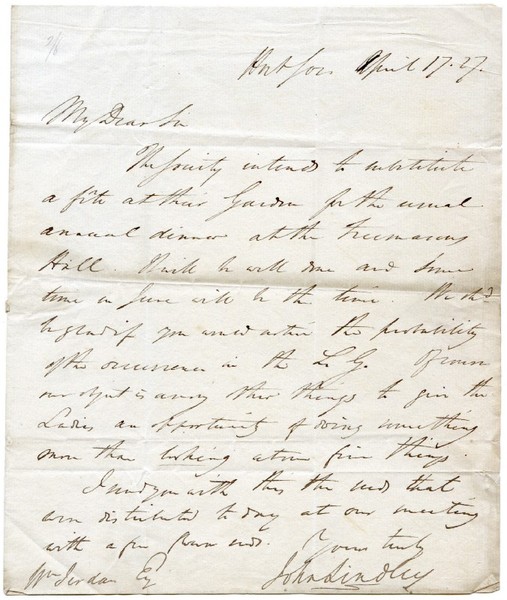 Hort Soc April 17. 27.
My Dear Sir
The Society intends to substitute
a fête at their Garden for the usual
annual dinner at the Freemasons
Hall. It will be well done and some
time in June will be the time. We shd
be glad if you would notice the probability
of the occurrence in the L. G. Of course
our object is among other things to give the
Ladies an opportunity of doing something
more than looking at our fine things.
I send you with this the seeds that
were distributed to day at our meeting
with a few flower seeds. Yours truly
Wm Jerdan Esq John Lindley